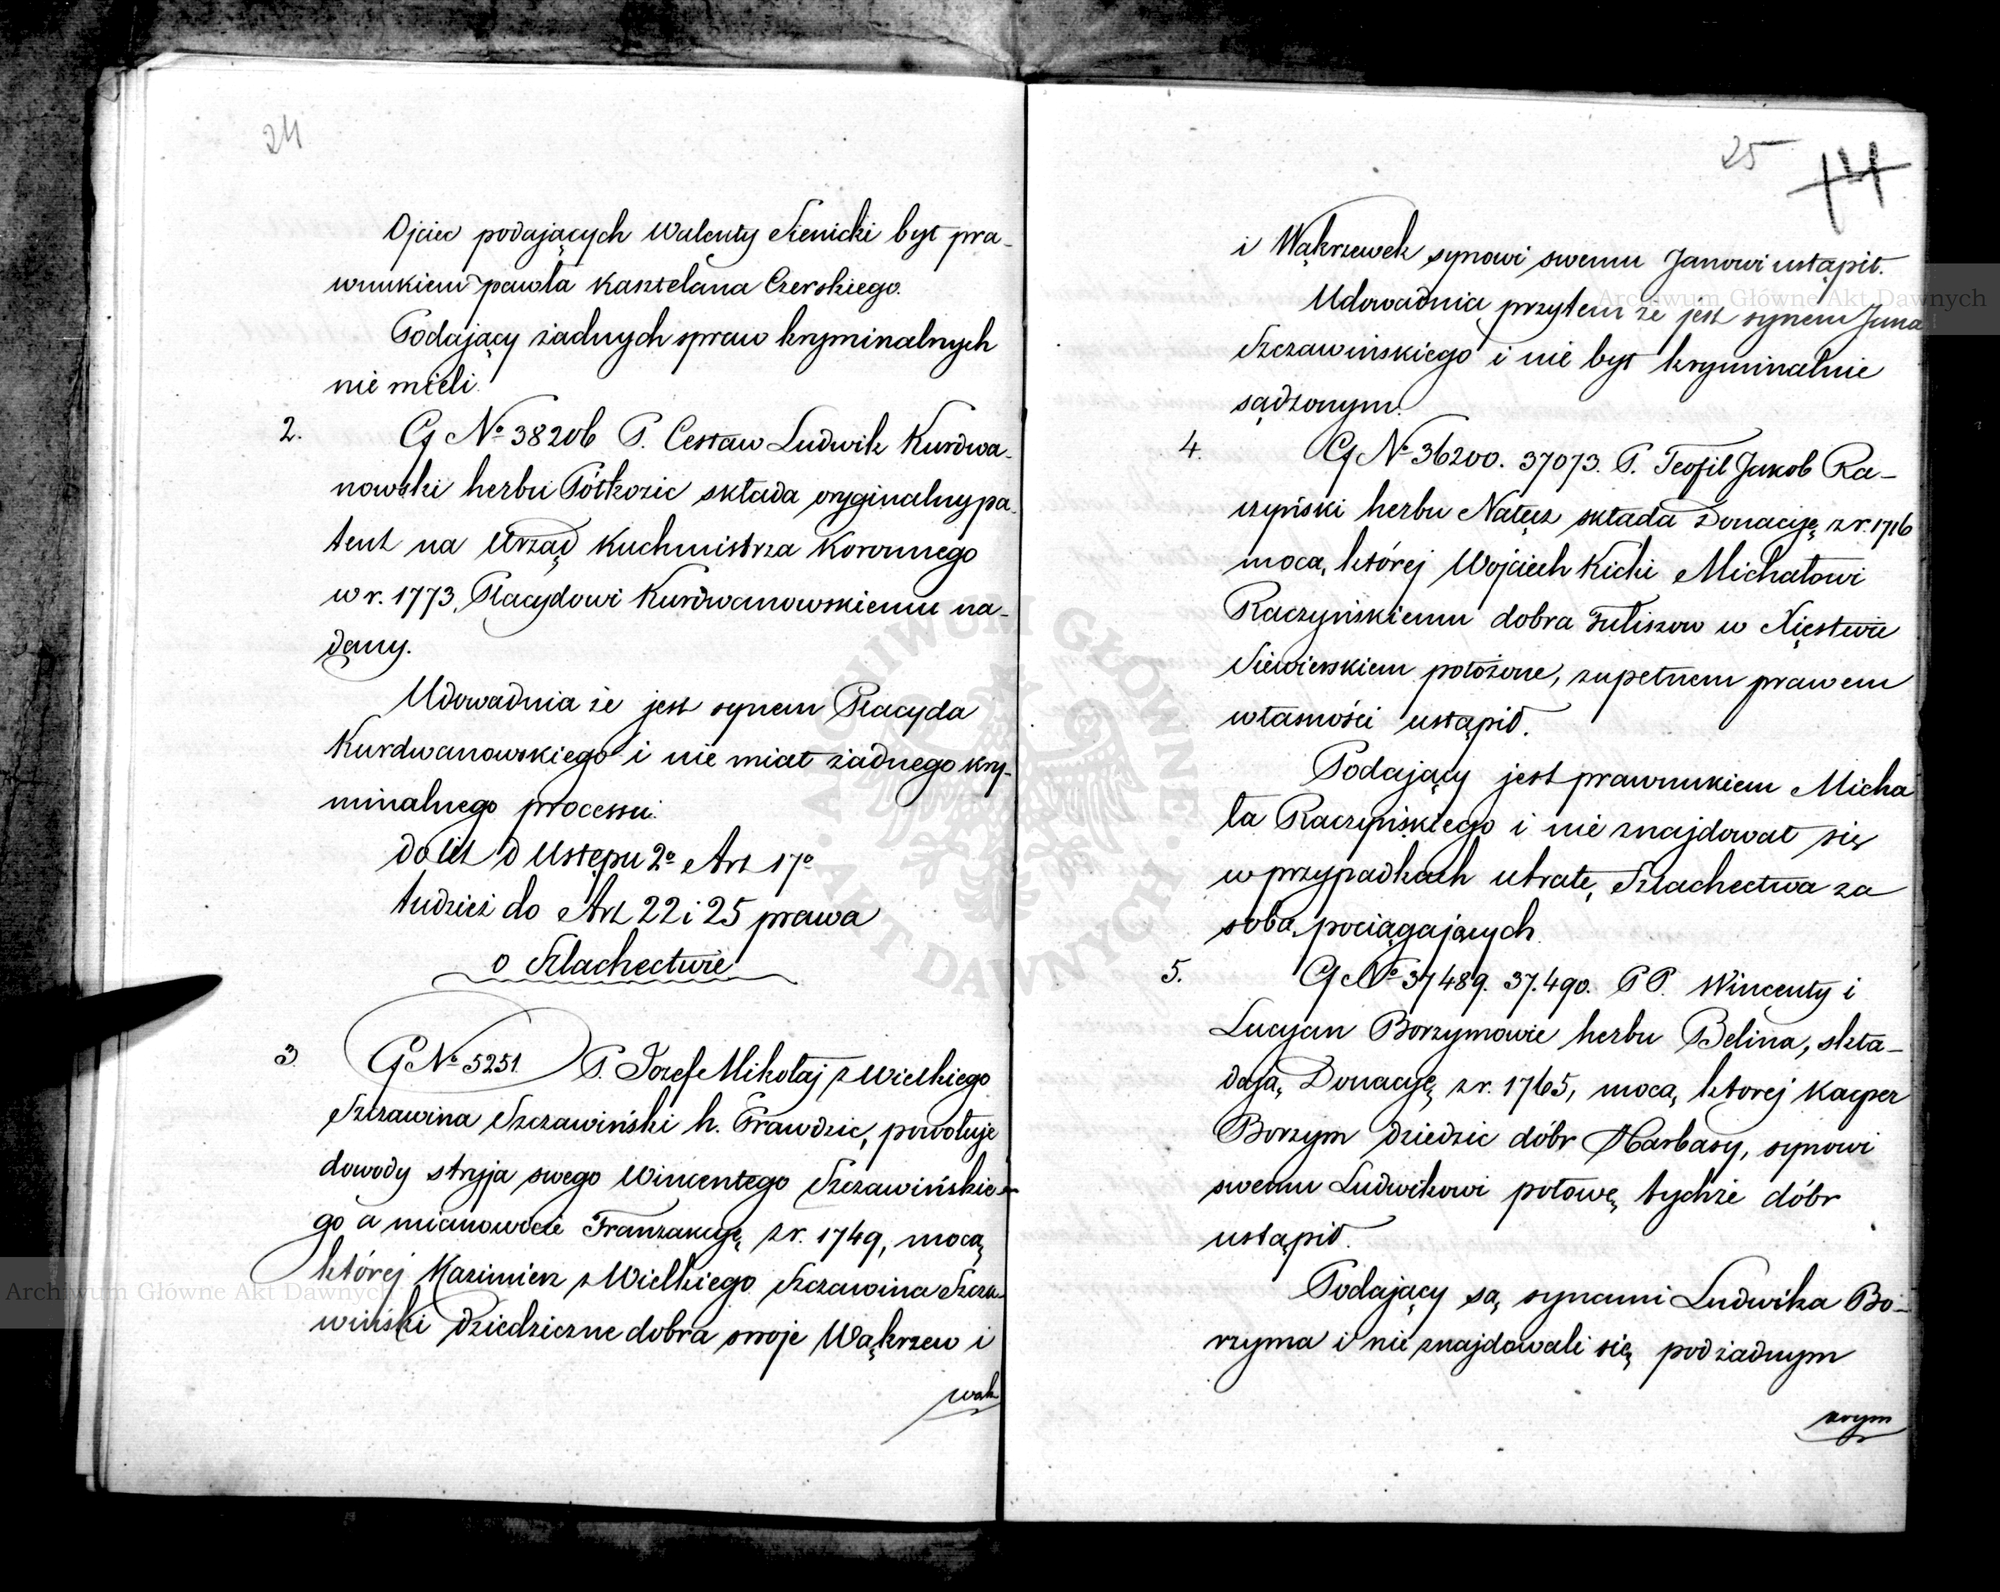 24
Ojciec podających Walenty Sienicki był pra-
wnukiem pawła Kasztelana Czerskiego.
Podający żadnych spraw kryminalnych
nie mieli.
2. G No 38206 P. Cesław Ludwik Kurdwa-
nowski herbu Półkozic składa oryginalny pa-
tent na Urząd Kuchmistrza Koronnego
w r. 1773, Placydowi Kurdwanowskiemu na-
dany.
Udowadnia że jest synem Placyda
Kurdwanowskiego i nie miał żadnego kry-
minalnego processu.
do lit d Ustępu 2o Art 17o
tudzież do Art 22 i 25 prawa
o Szlachectwie
3. G No 5251. P. Józef Mikołaj z Wielkiego
Szczawina Szczawiński h. Prawdzic, powołuje
dowody stryja swego Wincentego Szczawińskie-
go a mianowicie Tranzakcyę z r. 1749, mocą
której Kazimierz z Wielkiego Szczawina Szcza-
wiński dziedziczne dobra swoje Wąkrzew i
wak
25 14
i Wąkrzewek synowi swemu Janowi ustąpił.
Udowadnia przytem że jest synem Jana
Szczawińskiego i nie był kryminalnie
sądzonym.
4. G No 36200. 37073. P. Teofil Jakób Ra-
czyński herbu Nałęcz składa Donacyję z r. 1716
mocą, której Wojciech Kicki Michałowi
Raczyńskiemu dobra Tuliszow w Xięstwie
Siewierskiem położone, zupełnem prawem
własności ustąpił.
Podający jest prawnukiem Micha
ła Raczyńskiego i nie znajdował się
w przypadkach utratę, Szlachectwa za
sobą, pociągających.
5. G No 37489. 37.490. PP. Wincenty i
Lucyan Borzymowie herbu Belina, skła-
dają, Donacyę z r. 1765, mocą, ktorej Kacper
Borzym dziedzic dóbr Harbasy, synowi
swemu Ludwikowi połowę, tychże dóbr
ustąpił.
Podający są, synami Ludwika Bo-
rzyma i nie znajdowali się, pod żadnym
Archiwum Główne Akt Dawnych
Archiwum Główne Akt Dawnych
ARCHIWUM GŁÓWNE AKT DAWNYCH